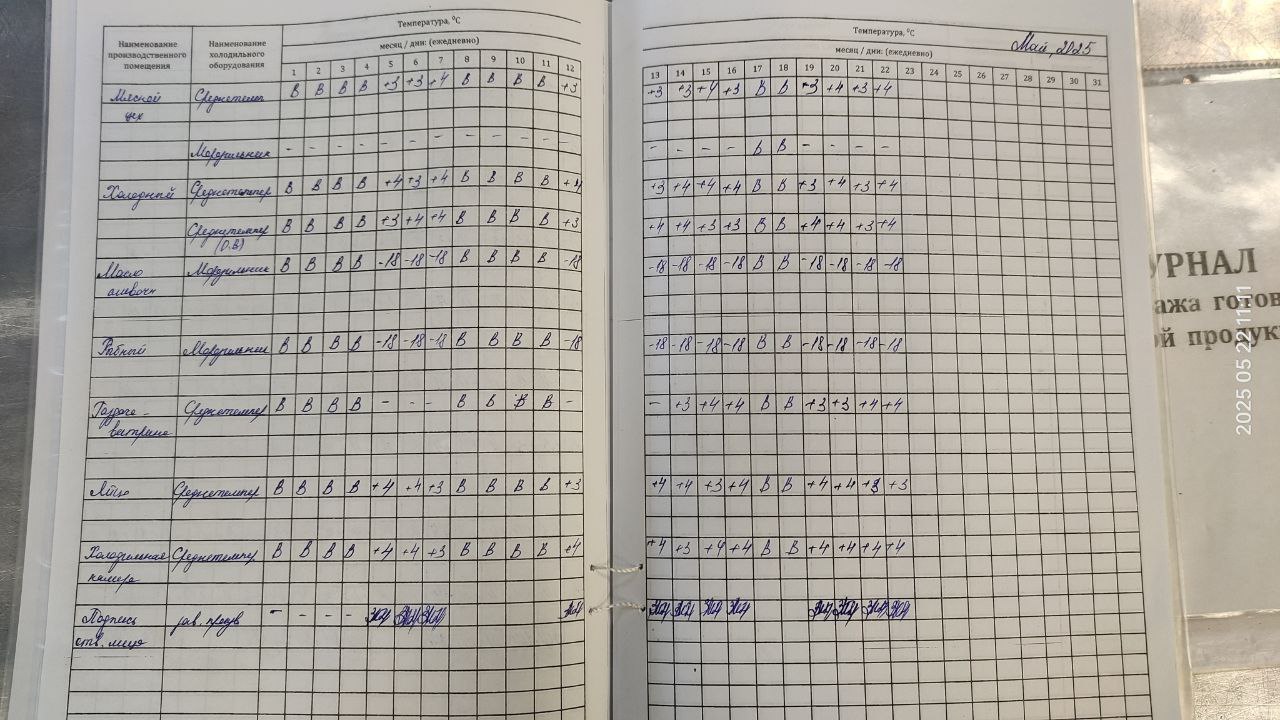 Температура, °C
Наименование производственного помещения Наименование холодильного оборудования месяц / дни: (ежедневно)
1 2 3 4 5 6 7 8 9 10 11 12
Мясной Среднетемп В В В В +3 +3 +4 В В В В +3
цех
Морозильник - - - - - - - - - - - -
Холодный Среднетемпер В В В В +4 +3 +4 В В В В +4
Среднетемпер В В В В +3 +4 +4 В В В В +3
(О.В)
Масло Морозильник В В В В -18 -18 -18 В В В В -18
сливочн
Рыбный Морозильник В В В В -18 -18 -18 В В В В -18
Среднетемпер В В В В - - - В В В В -
витрина
Яйцо Среднетемпер В В В В +4 +4 +3 В В В В +3
Холодильная Среднетемпер В В В В +4 +4 +3 В В В В +4
камера
Подпись зав. произв - - - -
отв. лица
Температура, °C
Май, 2025
месяц / дни: (ежедневно)
13 14 15 16 17 18 19 20 21 22 23 24 25 26 27 28 29 30 31
+3 +3 +4 +3 В В +3 +4 +3 +4
- - - - В В - - - -
+3 +4 +4 +4 В В +3 +4 +3 +4
+4 +4 +3 +3 В В +4 +4 +3 +4
-18 -18 -18 -18 В В -18 -18 -18 -18
-18 -18 -18 -18 В В -18 -18 -18 -18
- +3 +4 +4 В В +3 +3 +4 +4
+4 +4 +3 +4 В В +4 +4 +3 +3
+4 +3 +4 +4 В В +4 +4 +4 +4
УРНАЛ
ажа готов
ой продук
2025 05 22 11:11